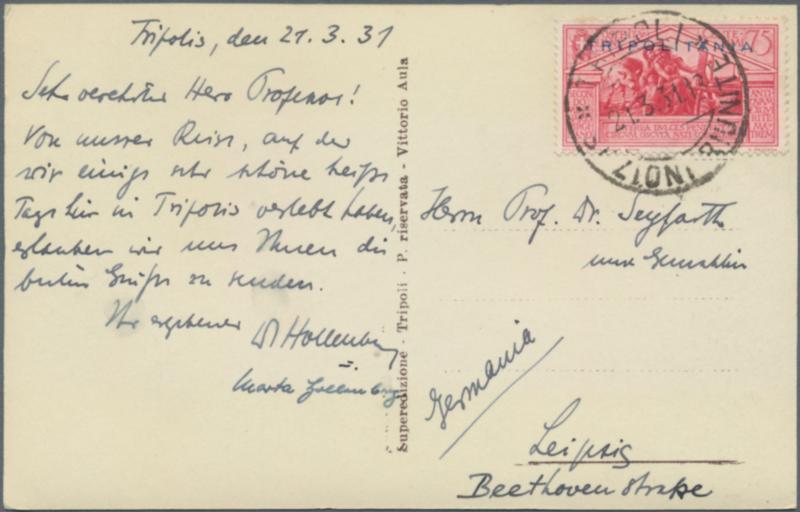 Tripolis, den 21.3.31
Sehr verehrter Herr Professor!
Von unserer Reise, auf der
wir einige sehr schöne heiße
Tage hier in Tripolis verlebt haben,
erlauben wir uns Ihnen die
besten Grüße zu senden.
Ihr ergebener W Hollenburg
u.
Marta Hollenburg
Superedizione - Tripoli - P. riservata - Vittorio Aula
TRIPOLITANIA
75
21.3.31.
Herrn Prof. Dr. Seyfarth
und Gemahlin
Germania
Leipzig
Beethovenstraße